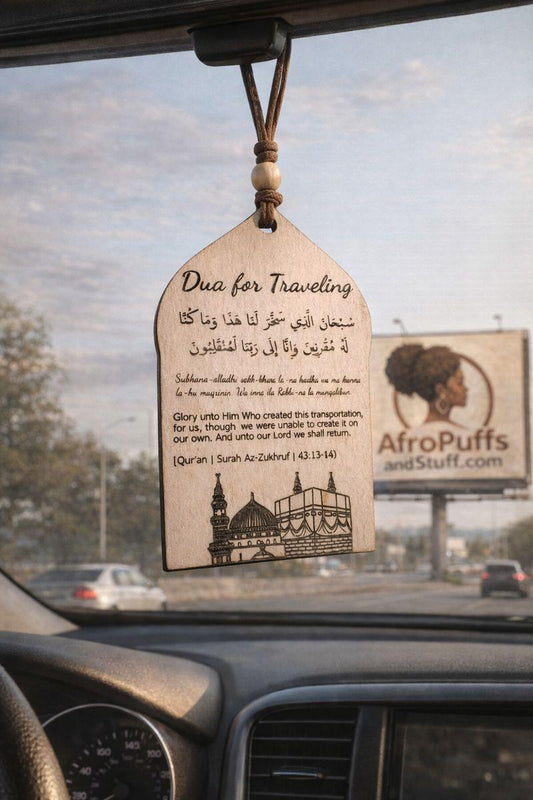 Dua for Traveling
سُبْحَانَ الَّذِي سَخَّرَ لَنَا هَذَا وَمَا كُنَّا
لَهُ مُقْرِنِينَ وَإِنَّا إِلَى رَبِّنَا لَمُنْقَلِبُونَ
Subhana-alladhi sakh-khara la-na hadha wa ma kunna
la-hu muqrinin. Wa inna ila Rabbi-na la munqaliban
Glory unto Him Who created this transportation,
for us, though we were unable to create it on
our own. And unto our Lord we shall return.
[Qur'an | Surah Az-Zukhruf | 43:13-14)
AfroPuffs
andStuff.com
145